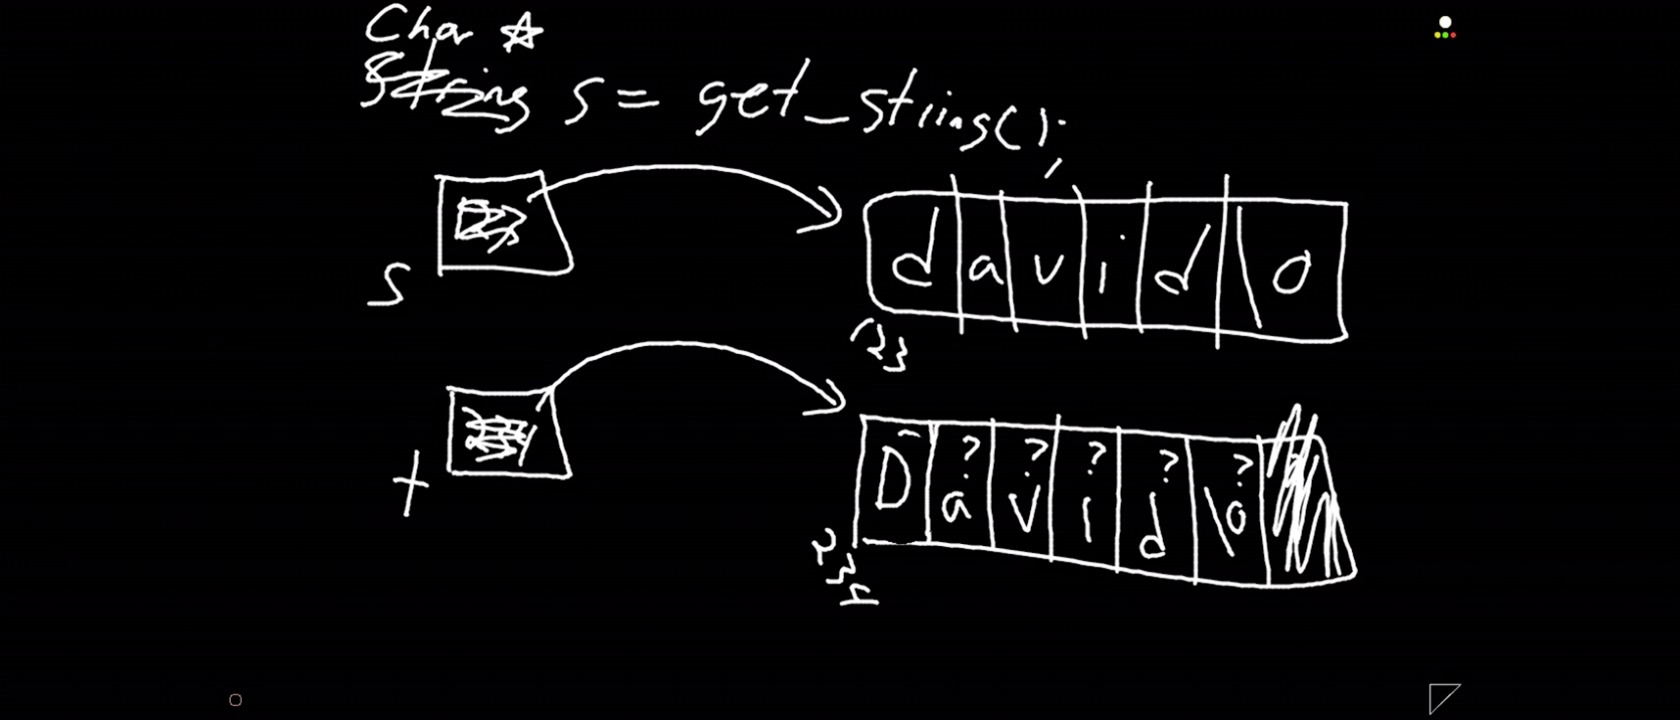 Char *
String s = get_string();
s
d a v i d \0
123
t
D a v i d \0
? ? ? ? ?